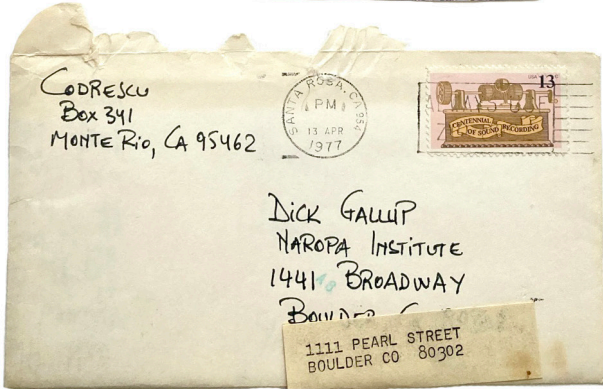 CODRESCU
BOX 341
MONTE RIO, CA 95462
SANTA ROSA, CA 954
PM
13 APR
1977
USA 13c
CENTENNIAL
OF SOUND RECORDING
DICK GALLUP
NAROPA INSTITUTE
1441 BROADWAY
BOULDER
1111 PEARL STREET
BOULDER CO 80302